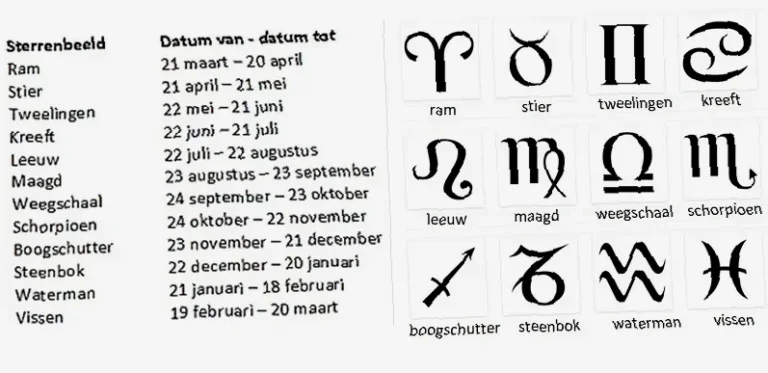 Sterrenbeeld Datum van - datum tot
Ram 21 maart – 20 april
Stier 21 april – 21 mei
Tweelingen 22 mei – 21 juni
Kreeft 22 juni – 21 juli
Leeuw 22 juli – 22 augustus
Maagd 23 augustus – 23 september
Weegschaal 24 september – 23 oktober
Schorpioen 24 oktober – 22 november
Boogschutter 23 november – 21 december
Steenbok 22 december – 20 januari
Waterman 21 januari – 18 februari
Vissen 19 februari – 20 maart
ram stier tweelingen kreeft
leeuw maagd weegschaal schorpioen
boogschutter steenbok waterman vissen